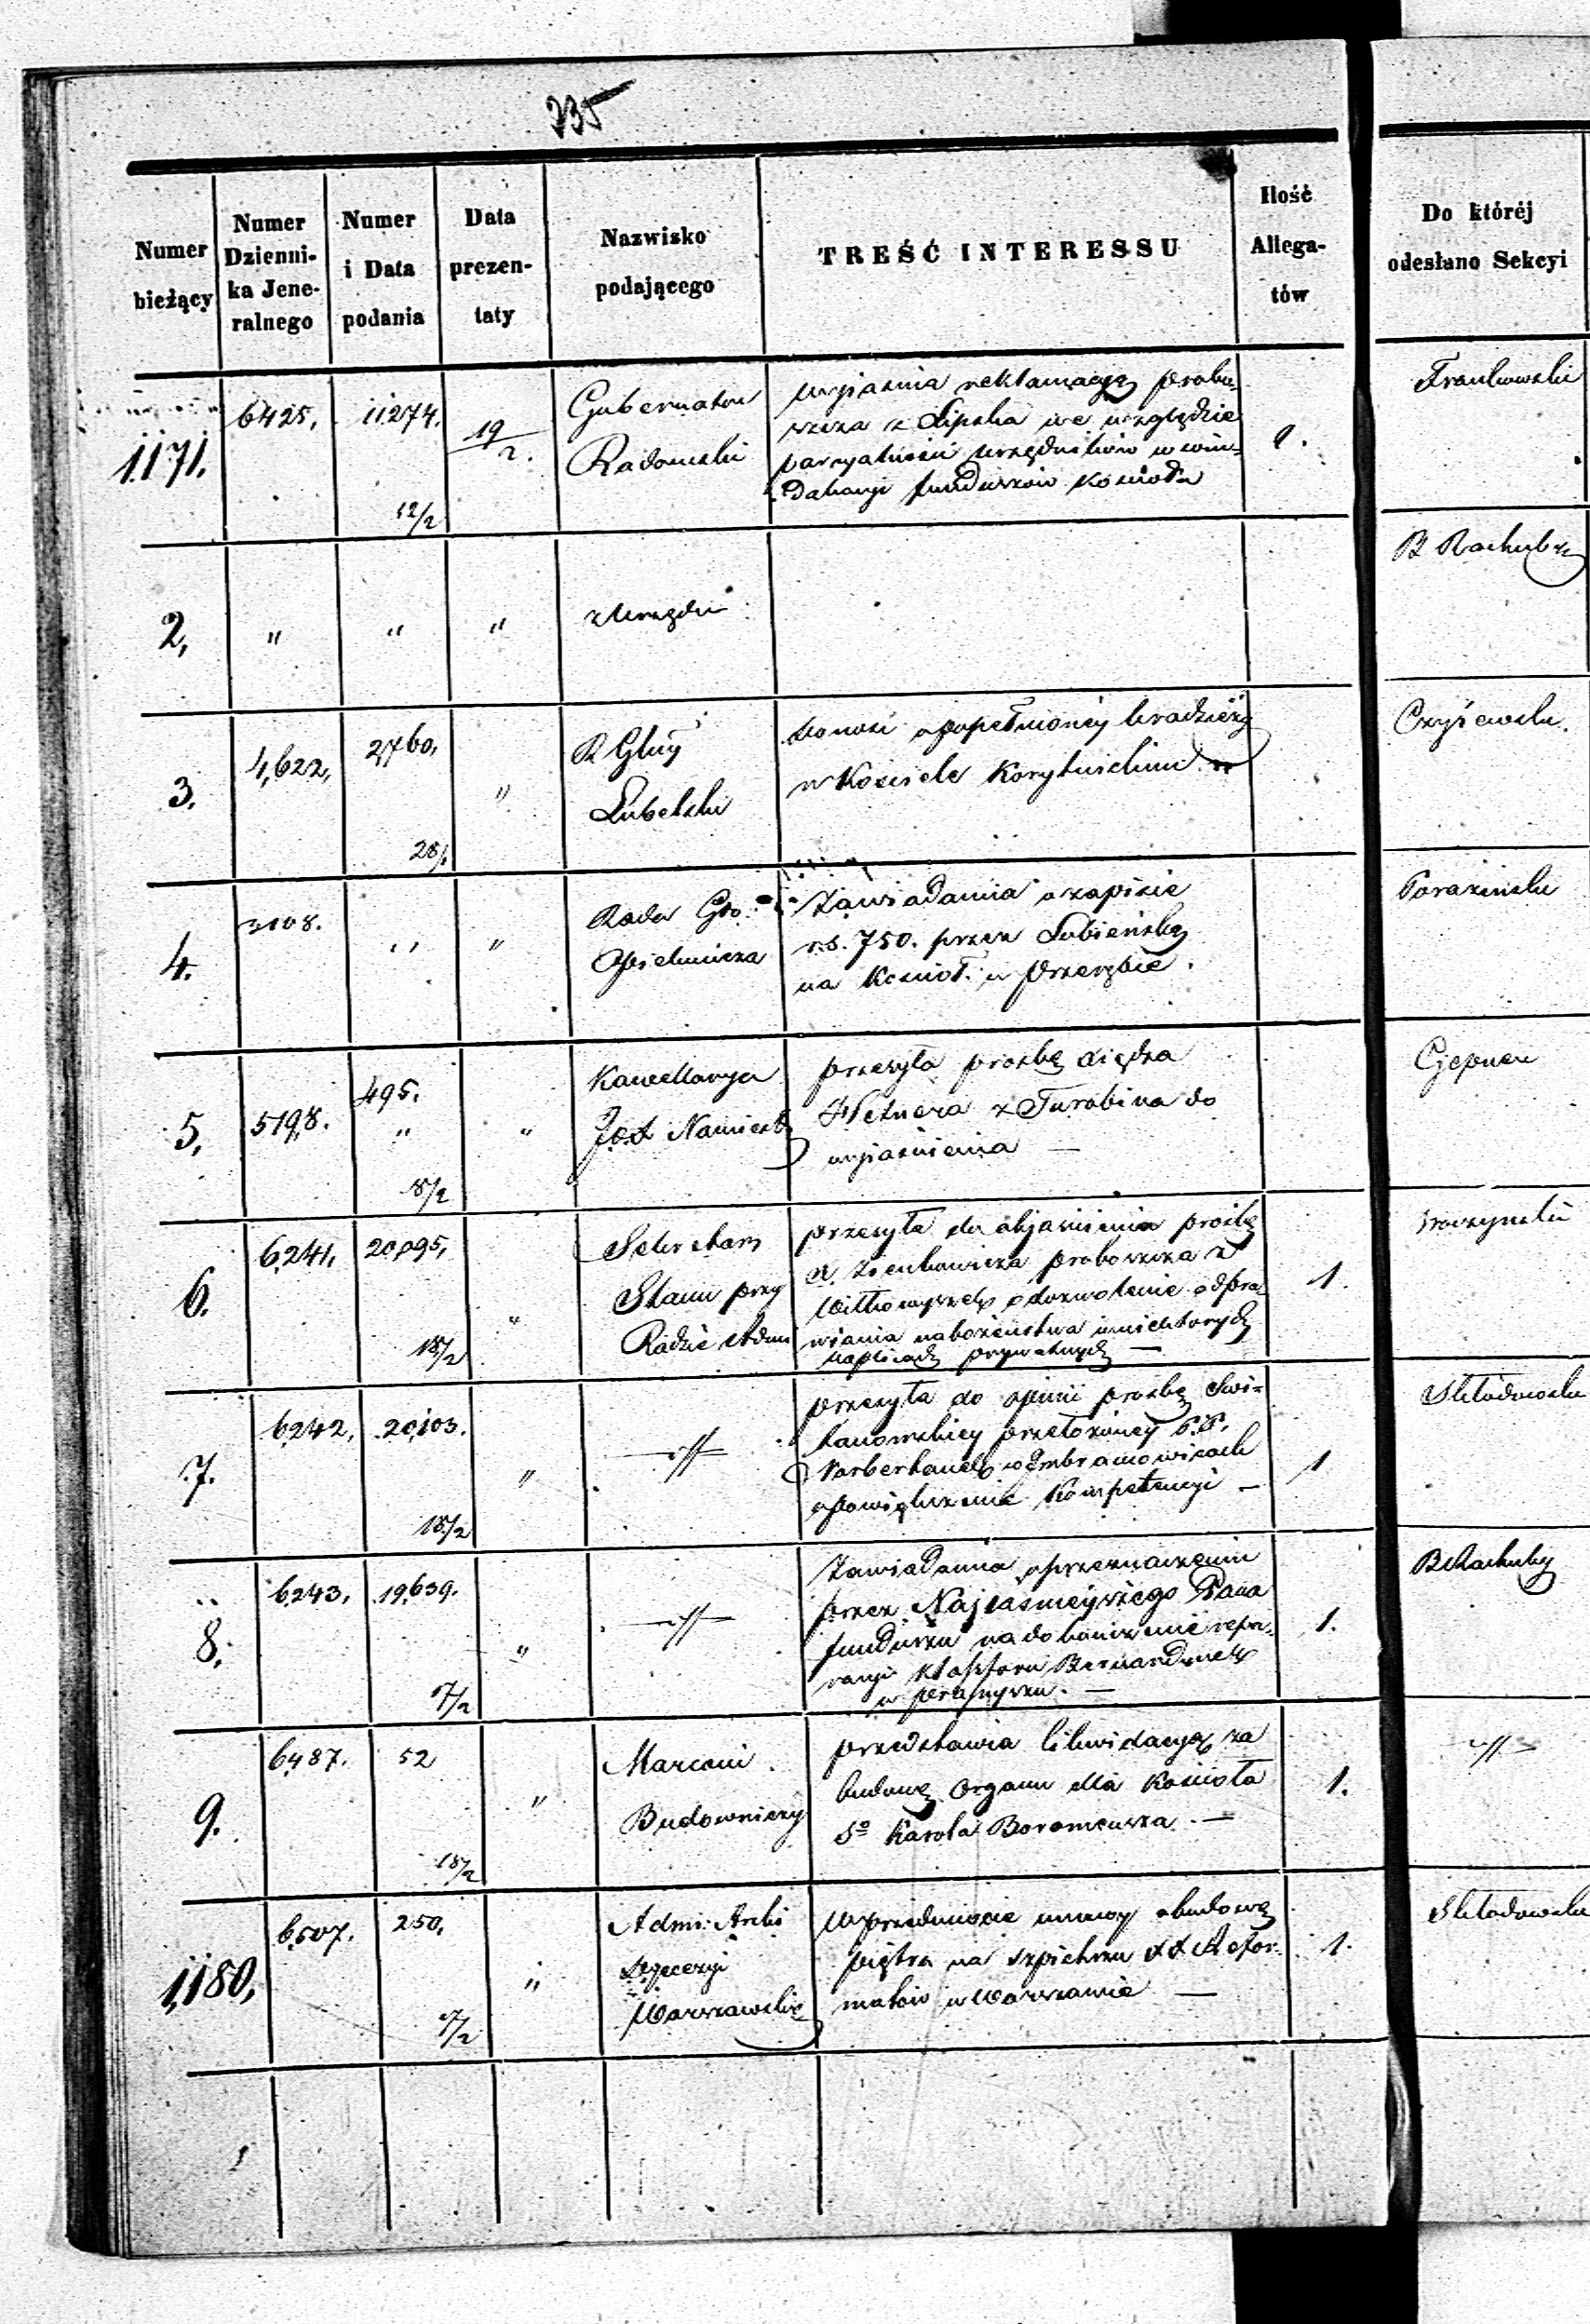 235
Numer bieżący
Numer Dzienni- ka Jene- ralnego
Numer i Data podania
Data prezen- taty
Nazwisko podającego
TREŚĆ INTERESSU
Ilość Allega- tów
Do któréj odesłano Sekcyi
1171.
6425,
11274.
12/2
19/2.
Gubernator
Radomski
wyjaśnia reklamacyę probo-
szcza z Lipska we względzie
parcyalności urzędników w win-
dakacyi funduszów Kościoła
Frankowski
2,
"
"
"
z Urzędu
B Rachuby
3.
4,622,
2760,
28/1
"
R Gluy
Lubelski
donosi o popełnionéy kradzieży
w Kościele Korytnickim
Czyżewski.
4.
3108.
"
"
Rada Gło:
Opiekuńcza
Zawiadamia o zapisie
r.s. 750. przez Łubieńską
na Kościoł w Przerębie.
Toraziński
5,
5198.
495.
"
8/2
"
Kancellarya
J.O.X Namiest
przesyła prośbę Księdza
z Turobina do
wyjaśnienia —
6.
6241,
20,095,
18/2
"
Sekretarz
Stanu przy
Radzie Admi
przesyła do objaśnienia prośbę
X. Zienkowicza proboszcza z
o dozwolenie odpra-
wiania nabożeństwa w niektórych
kaplicach prywatnych —
1.
7.
6242,
20,103.
18/2
"
—//—
przesyła do opinii prośbę Świ-
tanowskiey przełożonéy P.P.
Norbertanek w Imbramowicach
o powiększenie Kompetencyi —
1
Skłodowski
8,
6243,
19,639.
7/2
"
—//—
Zawiadamia o przeznaczeniu
przez Najjaśnieyszego Pana
funduszu na dokończenie repa-
racyi Klasztoru Bernardynek
w Przasnyszu. —
1.
B Rachuby
9.
6487.
52
18/2
"
Marconi
Budowniczy
przedstawia likwidacyę za
budowę organu dla Kościoła
Sº Karola Boromeusza —
1.
—//—
1,180,
6,507.
250,
7/2
"
Admi: Archi
Dyecezyi
Warszawskiej
W przedmiocie umowy o budowę
piętra na szpichrzu XX Refor-
matów w Warszawie —
1.
Skłodowski